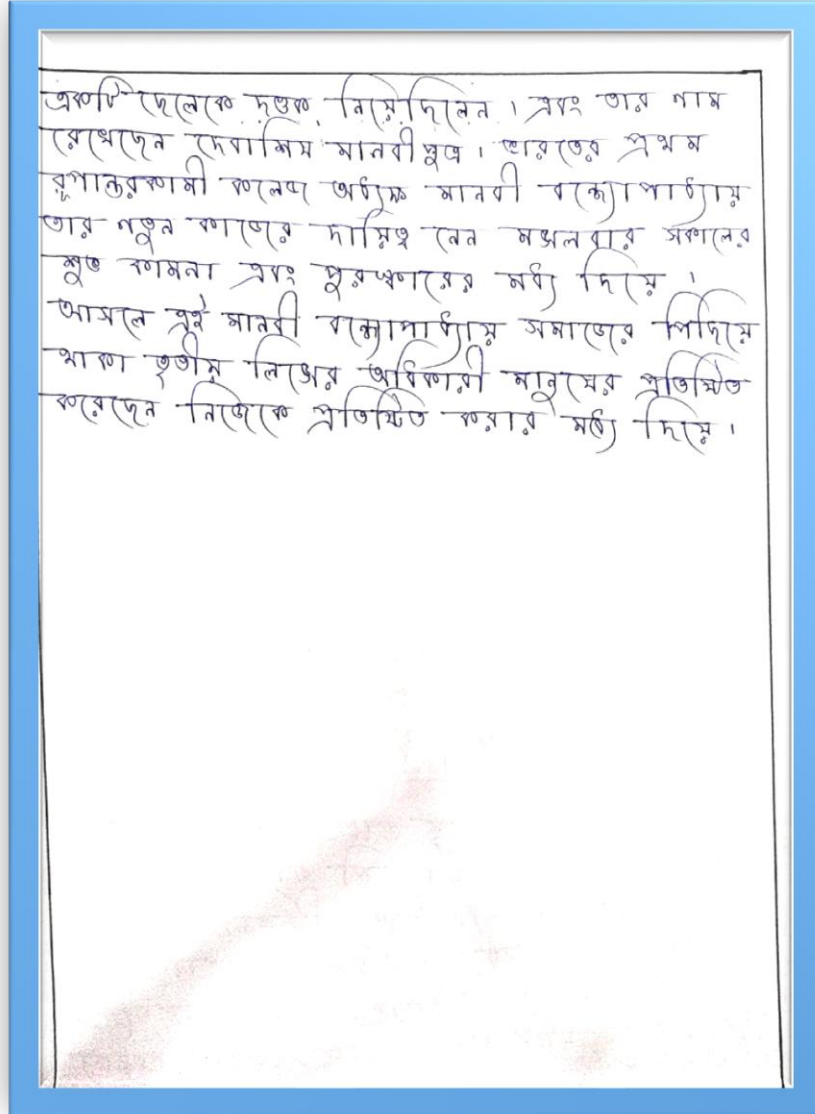 একটি ছেলেকে দত্তক নিয়েছিলেন। এবং তার নাম
রেখেছেন দেবাশিষ মানবীপুত্র। ভারতের প্রথম
রূপান্তরকামী কলেজ অধ্যক্ষ মানবী বন্দ্যোপাধ্যায়
তার নতুন কাজের দায়িত্ব নেন মঙ্গলবার সকালের
শুভ কামনা এবং পুরষ্কারের মধ্য দিয়ে।
আসলে এই মানবী বন্দ্যোপাধ্যায় সমাজের পিছিয়ে
থাকা তৃতীয় লিঙ্গের অধিকারী মানুষের প্রতিষ্ঠিত
করেছেন নিজেকে প্রতিষ্ঠিত করার মধ্যে দিয়ে।